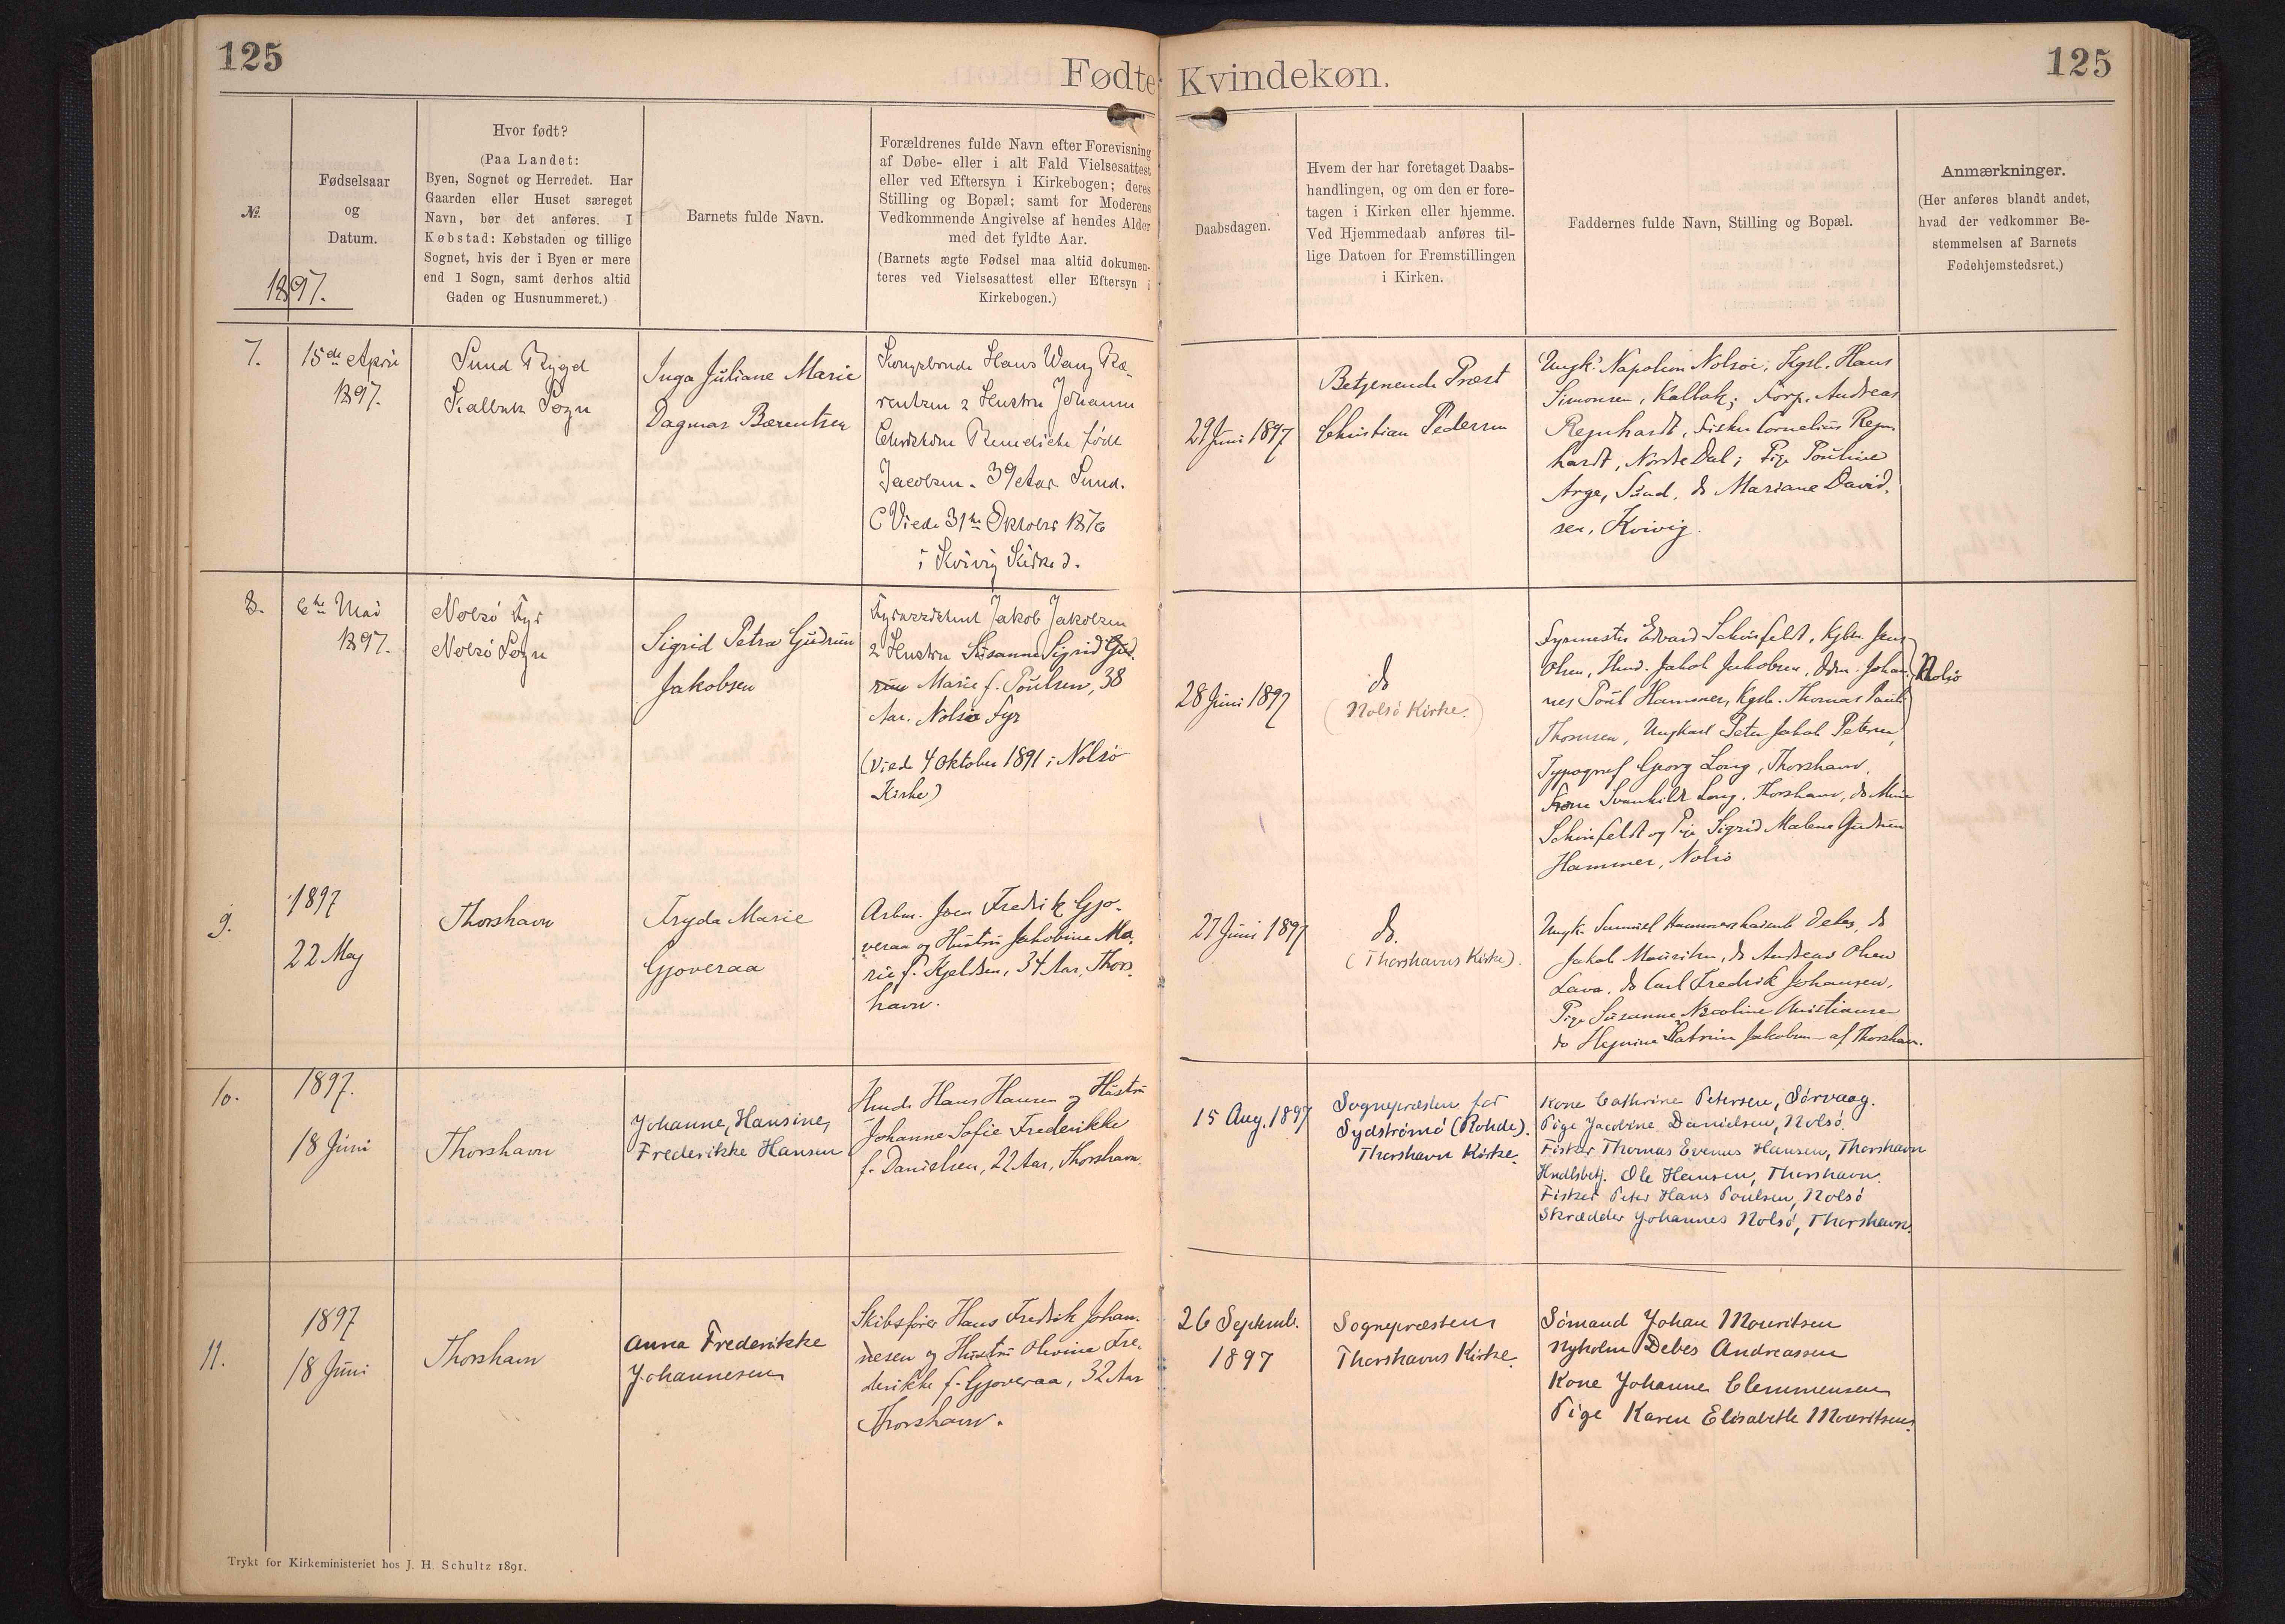 125
Fødte Kvindekøn.
125
№.
1897.
Fødselsaar
og
Datum.
Hvor født?
(Paa Landet:
Byen, Sognet og Herredet. Har
Gaarden eller Huset særeget
Navn, bør det anføres. I
Købstad: Købstaden og tillige
Sognet, hvis der i Byen er mere
end 1 Sogn, samt derhos altid
Gaden og Husnummeret.)
Barnets fulde Navn.
Forældrenes fulde Navn efter Forevisning
af Døbe- eller i alt Fald Vielsesattest
eller ved Eftersyn i Kirkebogen; deres
Stilling og Bopæl; samt for Moderens
Vedkommende Angivelse af hendes Alder
med det fyldte Aar.
(Barnets ægte Fødsel maa altid dokumen-
teres ved Vielsesattest eller Eftersyn i
Kirkebogen.)
Daabsdagen.
Hvem der har foretaget Daabs-
handlingen, og om den er fore-
tagen i Kirken eller hjemme.
Ved Hjemmedaab anføres til-
lige Datoen for Fremstillingen
i Kirken.
Faddernes fulde Navn, Stilling og Bopæl.
Anmærkninger.
(Her anføres blandt andet,
hvad der vedkommer Be-
stemmelsen af Barnets
Fødehjemstedsret.)
7.
15de April
1897.
Sund Bygd
Kalbak Sogn
Inga Juliane Marie
Dagmar Bærentsen
Kongsbonde Hans Wang Bæ-
rentsen & Hustru Johanne
Benedicte født
Jacobsen. 39 Aar Sund.
(Viede 31te Oktober 1876
i Kvivig Kirke).
29 Juni 1897
Betjenende Præst
Christian Pedersen
Ungk. Napoleon Nolsøe, Kgsb. Hans
Simonsen, Kalbak; Forp. Andreas
Reynhardt, Fisker Cornelius Reyn-
hardt, Norde Dal; Pige Pouline
Arge, Sund, do Mariane David-
sen, Kvivig.
8.
6te Mai
1897.
Nolsø Fyr
Nolsø Sogn
Sigrid Petra Gudrun
Jakobsen
Fyrassistent Jakob Jakobsen
& Hustru Susanne Sigrid Gud-
run Marie f. Poulsen, 38
Aar. Nolsø Fyr
(Viede 4 Oktober 1891 i Nolsø
Kirke)
28 Juni 1897
do
(Nolsø Kirke.)
Fyrmester Edvard Schönfeldt, Kgbr. Jens
Olsen, Hmd. Jakob Jakobsen, Johan-
nes Poul Hammer, Kgsb. Thomas Pauli
Nolsø
Thomsen, Ungkarl Peter Jakob Petersen,
Typograf Georg Long, Thorshavn,
Kone Svanhildt Long, Thorshavn, do Mina
Schönfeldt og Pige Sigrid Malene Gudrun
Hammer, Nolsø
9.
1897
22 Maj
Thorshavn
Fryda Marie
Gjoveraa
Arbm. Joen Fredrik Gjo-
veraa og Hustru Jakobine Ma-
rie f. Kjeldsen, 34 Aar, Thors-
havn.
27 Juni 1897
do.
(Thorshavns Kirke).
Ungk. Samuel Hammershaimb Debes, do
Jakob Mouritsen, do Andreas Olsen
Lava, do Carl Fredrik Johansen,
Pige Susanne Nicoline Christiansen
do Katrine Jakobsen – af Thorshavn.
10.
1897.
18 Juni
Thorshavn
Johanne, Hansine,
Frederikke Hansen
Hmd. Hans Hansen og Hustru
Johanne Sofie Frederikke
f. Danielsen, 22 Aar, Thorshavn
15 Aug. 1897
Sognepræsten for
Sydstrømø (Rohde).
Thorshavn Kirke.
Kone Cathrine Petersen, Sørvaag.
Pige Jacobine Danielsen, Nolsø.
Fisker Thomas Evenus Hansen, Thorshavn
Hndlsbetj. Ole Hansen, Thorshavn.
Fisker Peter Hans Poulsen, Nolsø
Skrædder Johannes Nolsø, Thorshavn.
11.
1897
18 Juni
Thorshavn
Anna Frederikke
Johannesen
Skibsfører Hans Fredrik Johan-
nesen og Hustru Olivine Fre-
derikke f. Gjoveraa, 32 Aar
Thorshavn.
26 Septemb.
1897
Sognepræsten
Thorshavns Kirke.
Sømand Johan Mouritsen
Nyholm Debes Andreassen
Kone Johanne Clemmensen
Pige Karen Elisabeth Mouritsen.
Trykt for Kirkeministeriet hos J. H. Schultz 1891.